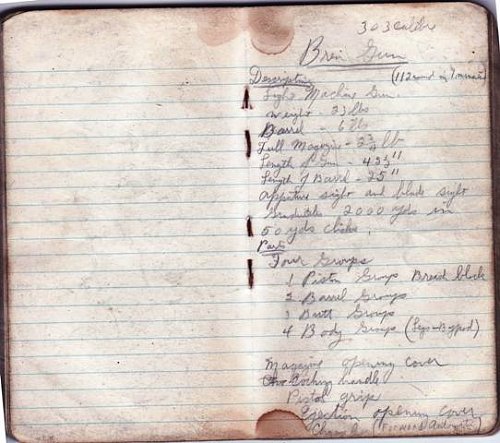 303 Calibre
Bren Gun
Description (112 round in 1 minute)
Light Machine Gun.
Weight - 23 lbs
Barrel - 6 lbs
Full Magazine - 2 3/4 lb
Length of Gun - 45 1/2"
Length of Barrel - 25"
Apperture sight and blade sight
Graduated 2000 yds in
50 yds clicks.
Parts
Four Groups
1 Piston Group Breech block
2 Barrel Groups
3 Butt Groups
4 Body Groups (Legs - Bypod)
Magazine opening cover
Cocking handle
Pistol grip
Ejection opening cover